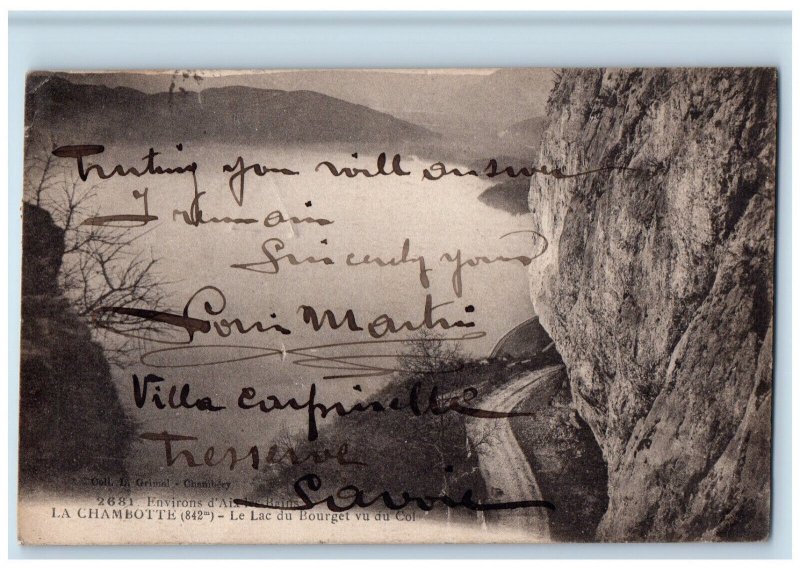 Trusting you will answer
I remain
Sincerely yours
Louis Martin
Villa
Tresserve
Savoie
Coll. L. Grimal - Chambéry
2631 Environs d'Aix
LA CHAMBOTTE (842m) - Le Lac du Bourget vu du Col